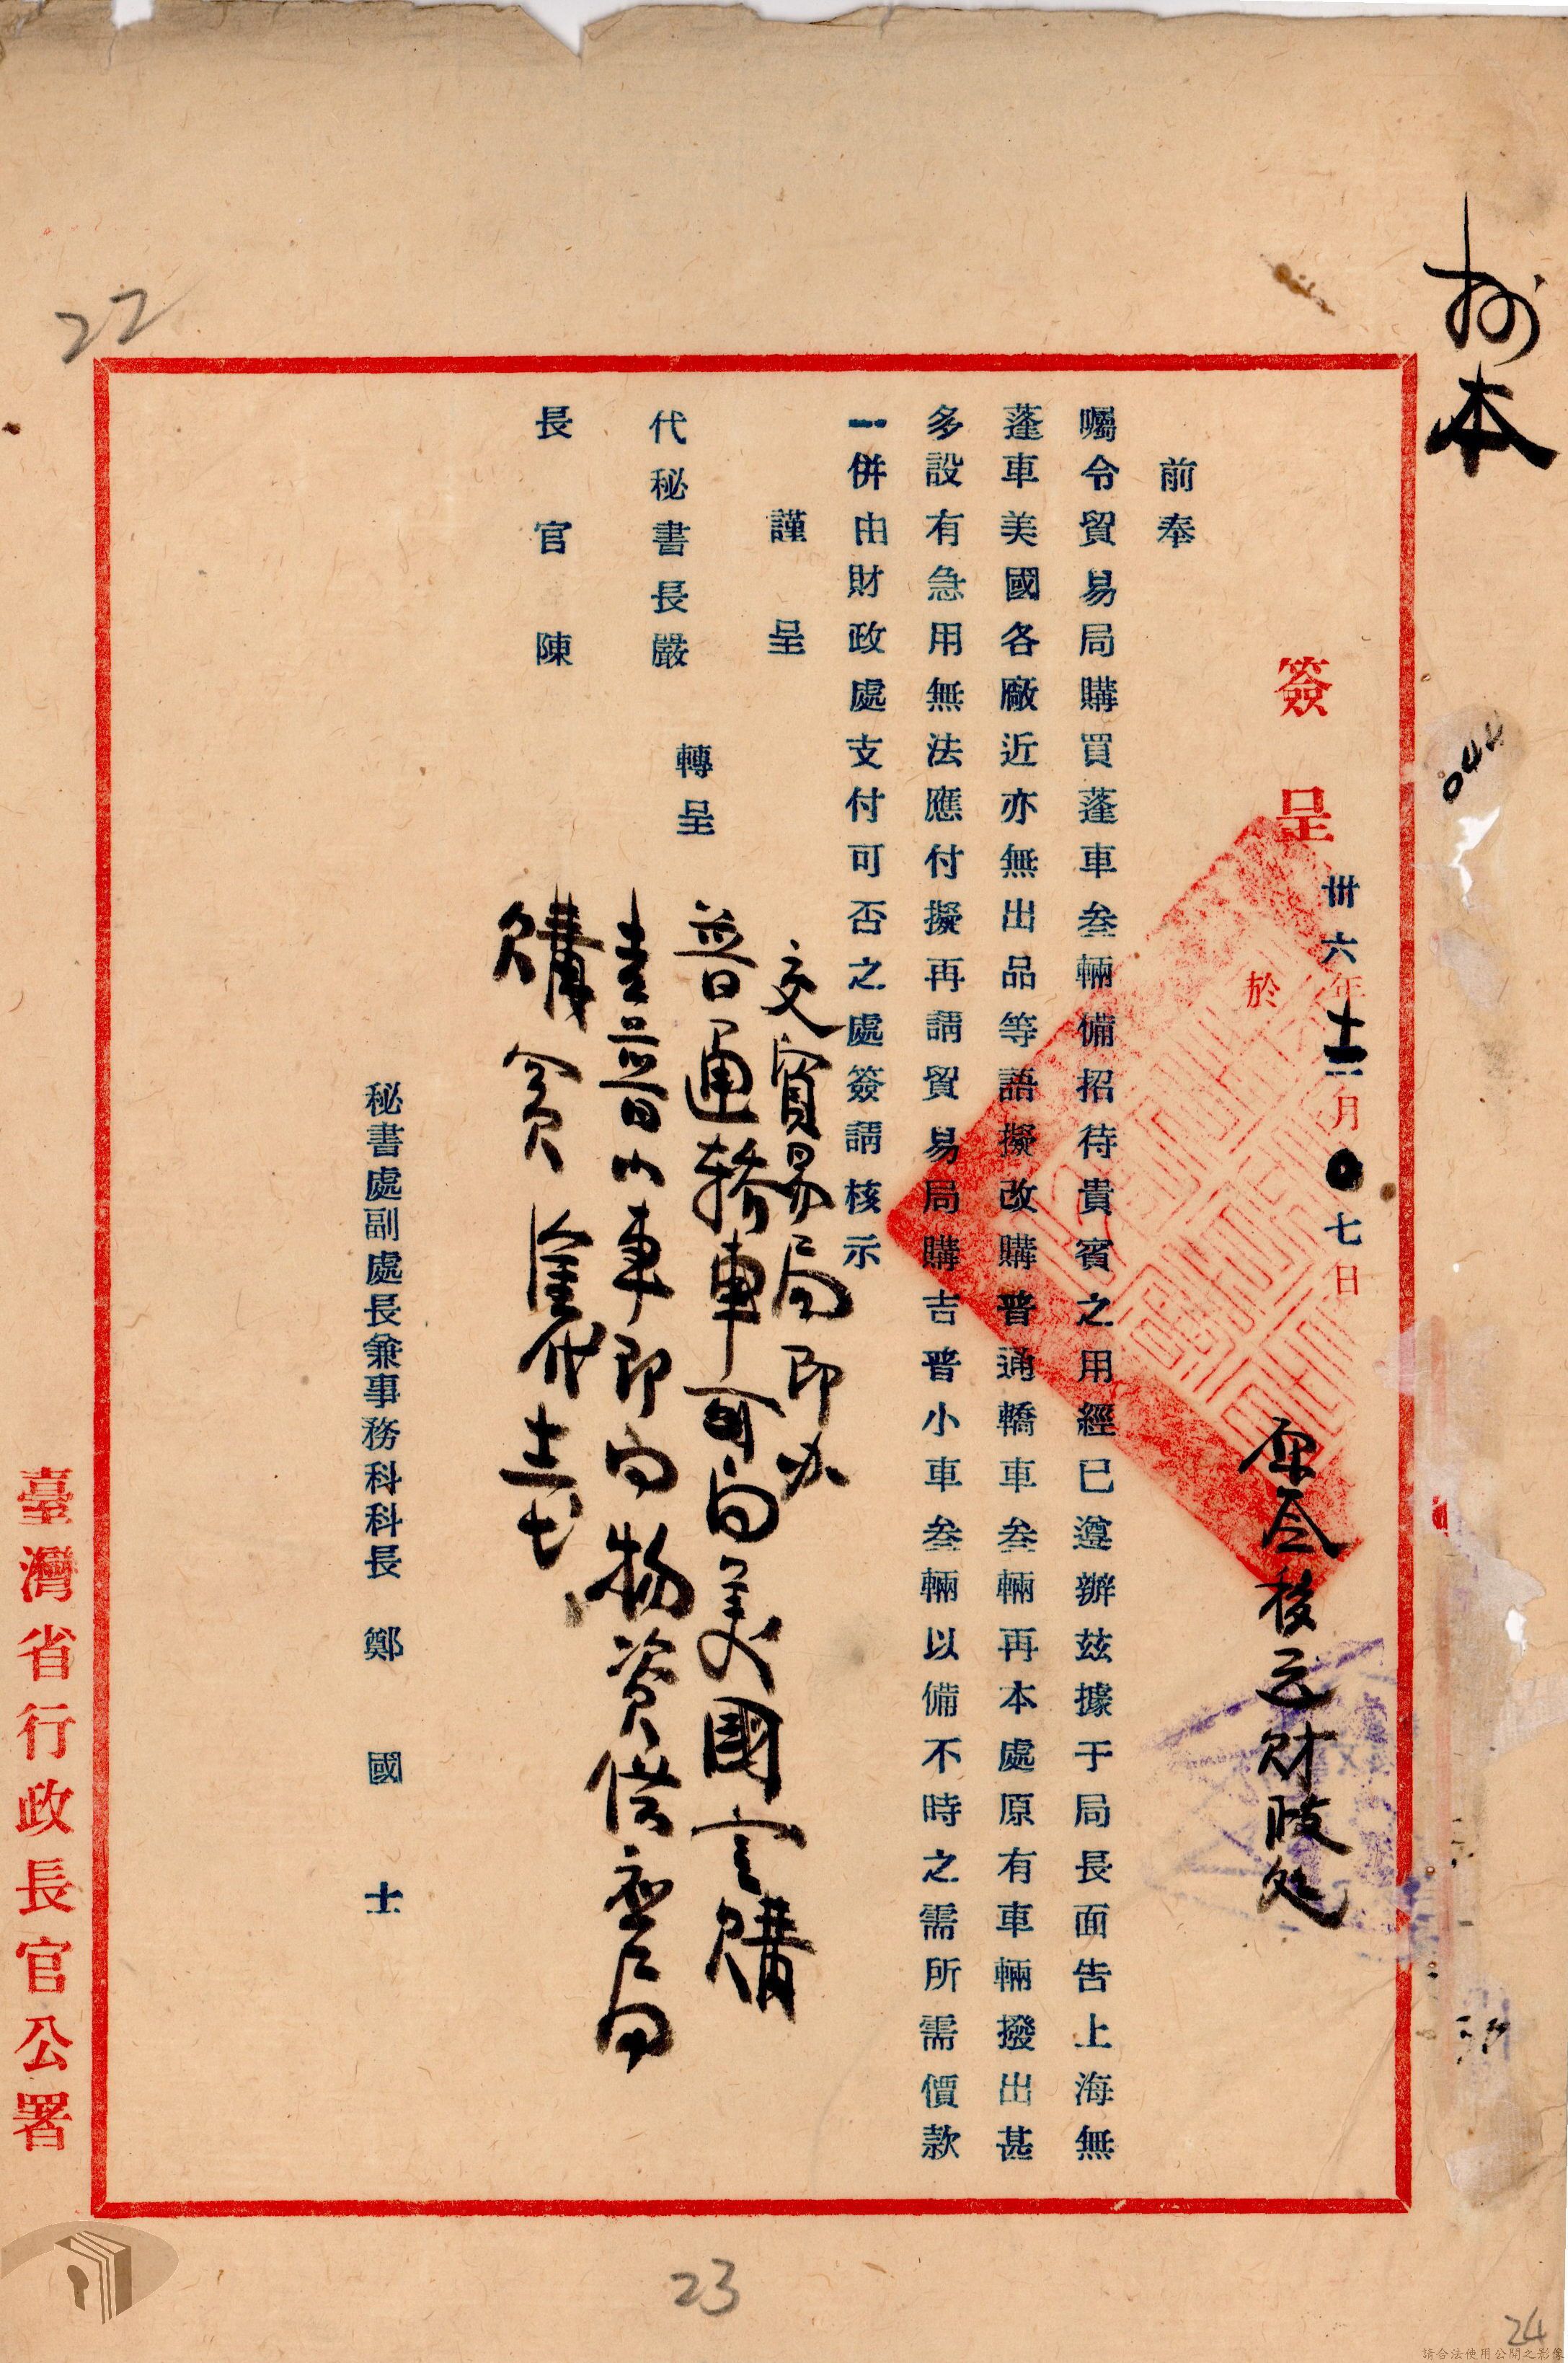 抄本
簽呈
於
卅六年十二月七日
原盒移送財政处
前奉
囑令貿易局購買蓬車叁輛備招待貴賓之用經已遵辦茲據于局長面告上海無
蓬車美國各廠近亦無出品等語擬改購普通轎車叁輛再本處原有車輛撥出甚
多設有急用無法應付擬再請貿易局購吉普小車叁輛以備不時之需所需價款
一併由財政處支付可否之處簽請核示
謹呈
代秘書長嚴
轉呈
長官陳
交貿易局即办
普通轎車可向美國定購
吉普小車即向物資供應局
購買
秘書處副處長兼事務科科長 鄭國士
臺灣省行政長官公署
22
23
24
042
請合法使用公開之影像